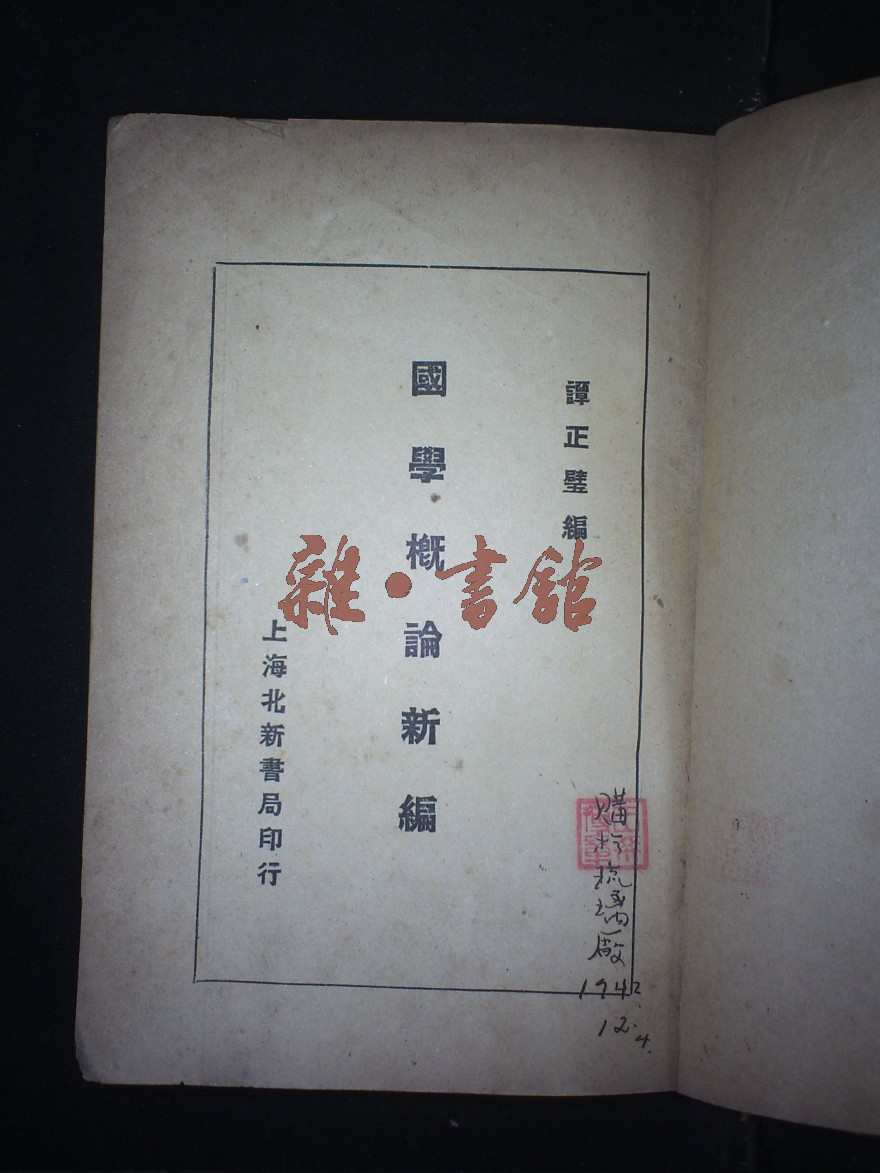 譚正璧編
國學概論新編
上海北新書局印行
雜·書館
購於琉璃廠
1942.
12.4.